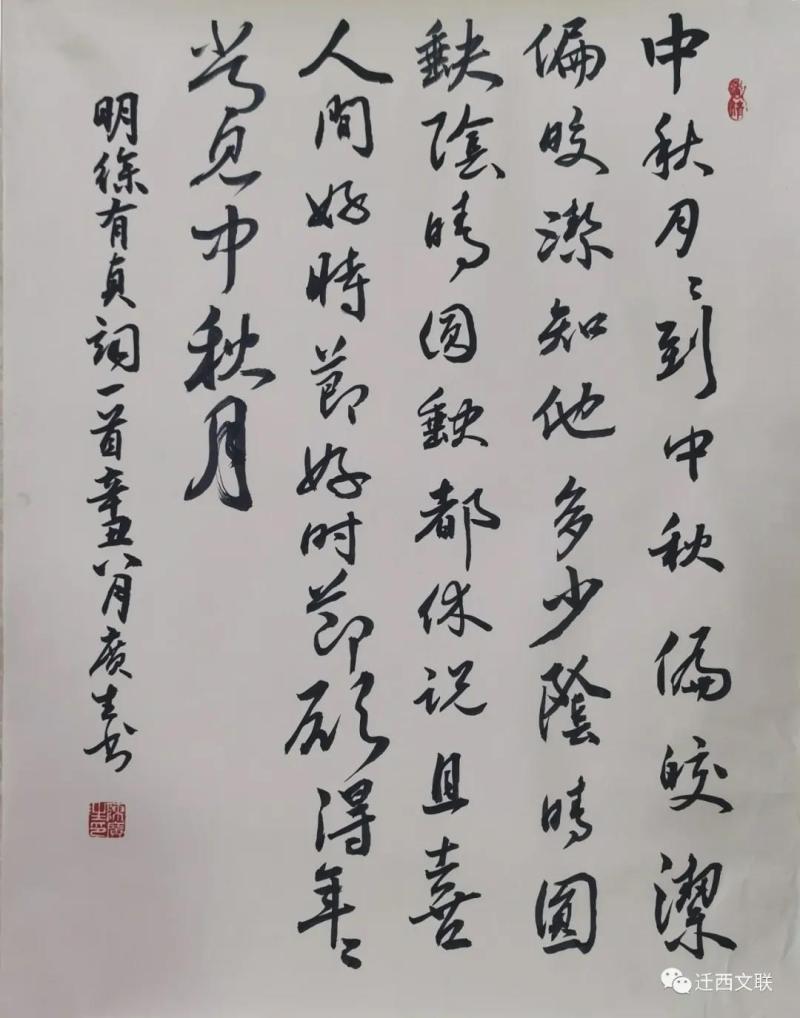 中秋月〻到中秋偏皎潔
偏皎潔知他多少陰晴圓
缺陰晴圓缺都休说且喜
人間好時節好时節願得年〻
常見中秋月
明徐有貞詞一首辛丑八月廣生书
迁西文联